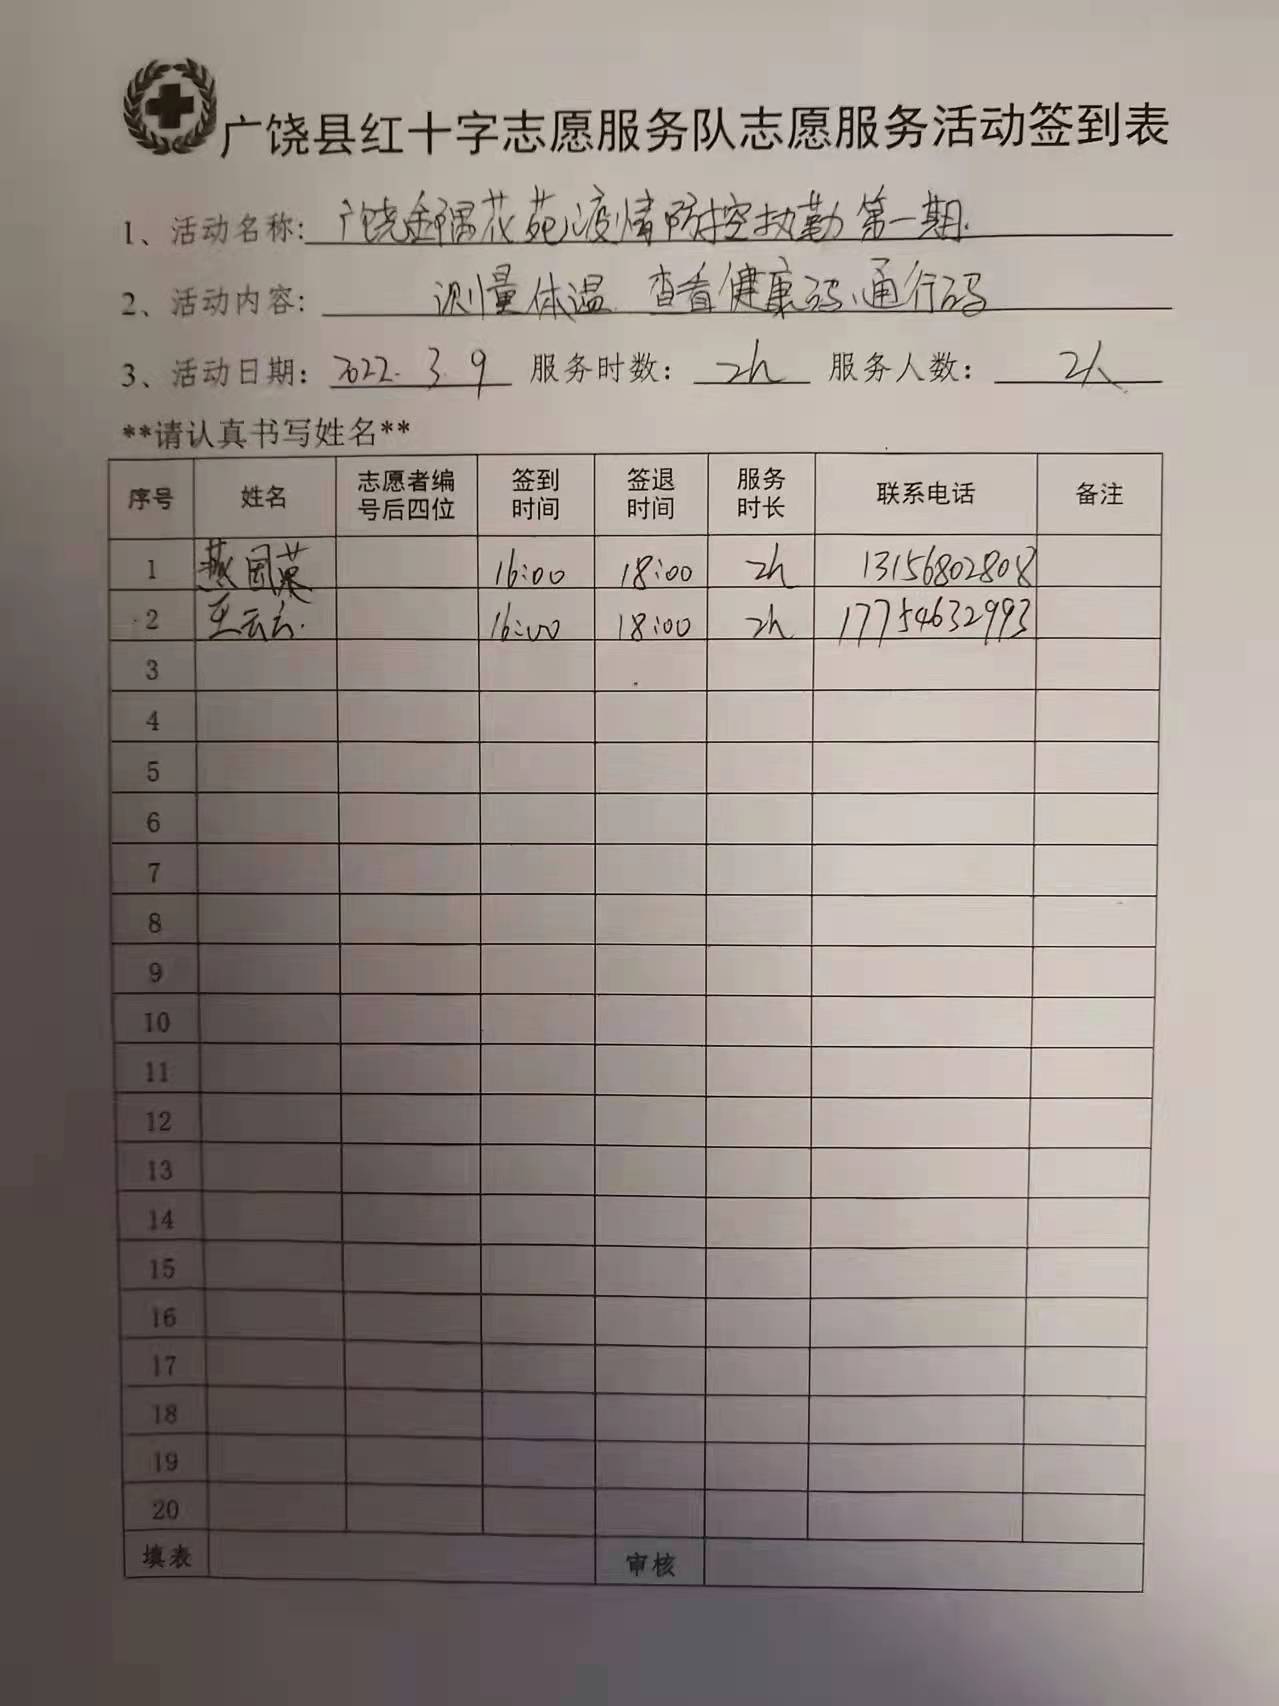 广饶县红十字志愿服务队志愿服务活动签到表
1、活动名称: 广饶金隅花苑疫情防控执勤第一期.
2、活动内容: 测量体温、查看健康码、通行码
3、活动日期: 2022.3.9 服务时数: 2h 服务人数: 2人
**请认真书写姓名**
序号 姓名 志愿者编号后四位 签到时间 签退时间 服务时长 联系电话 备注
1 燕国英 16:00 18:00 2h 13156802808
2 王云云. 16:00 18:00 2h 17754632993
3
4
5
6
7
8
9
10
11
12
13
14
15
16
17
18
19
20
填表 审核